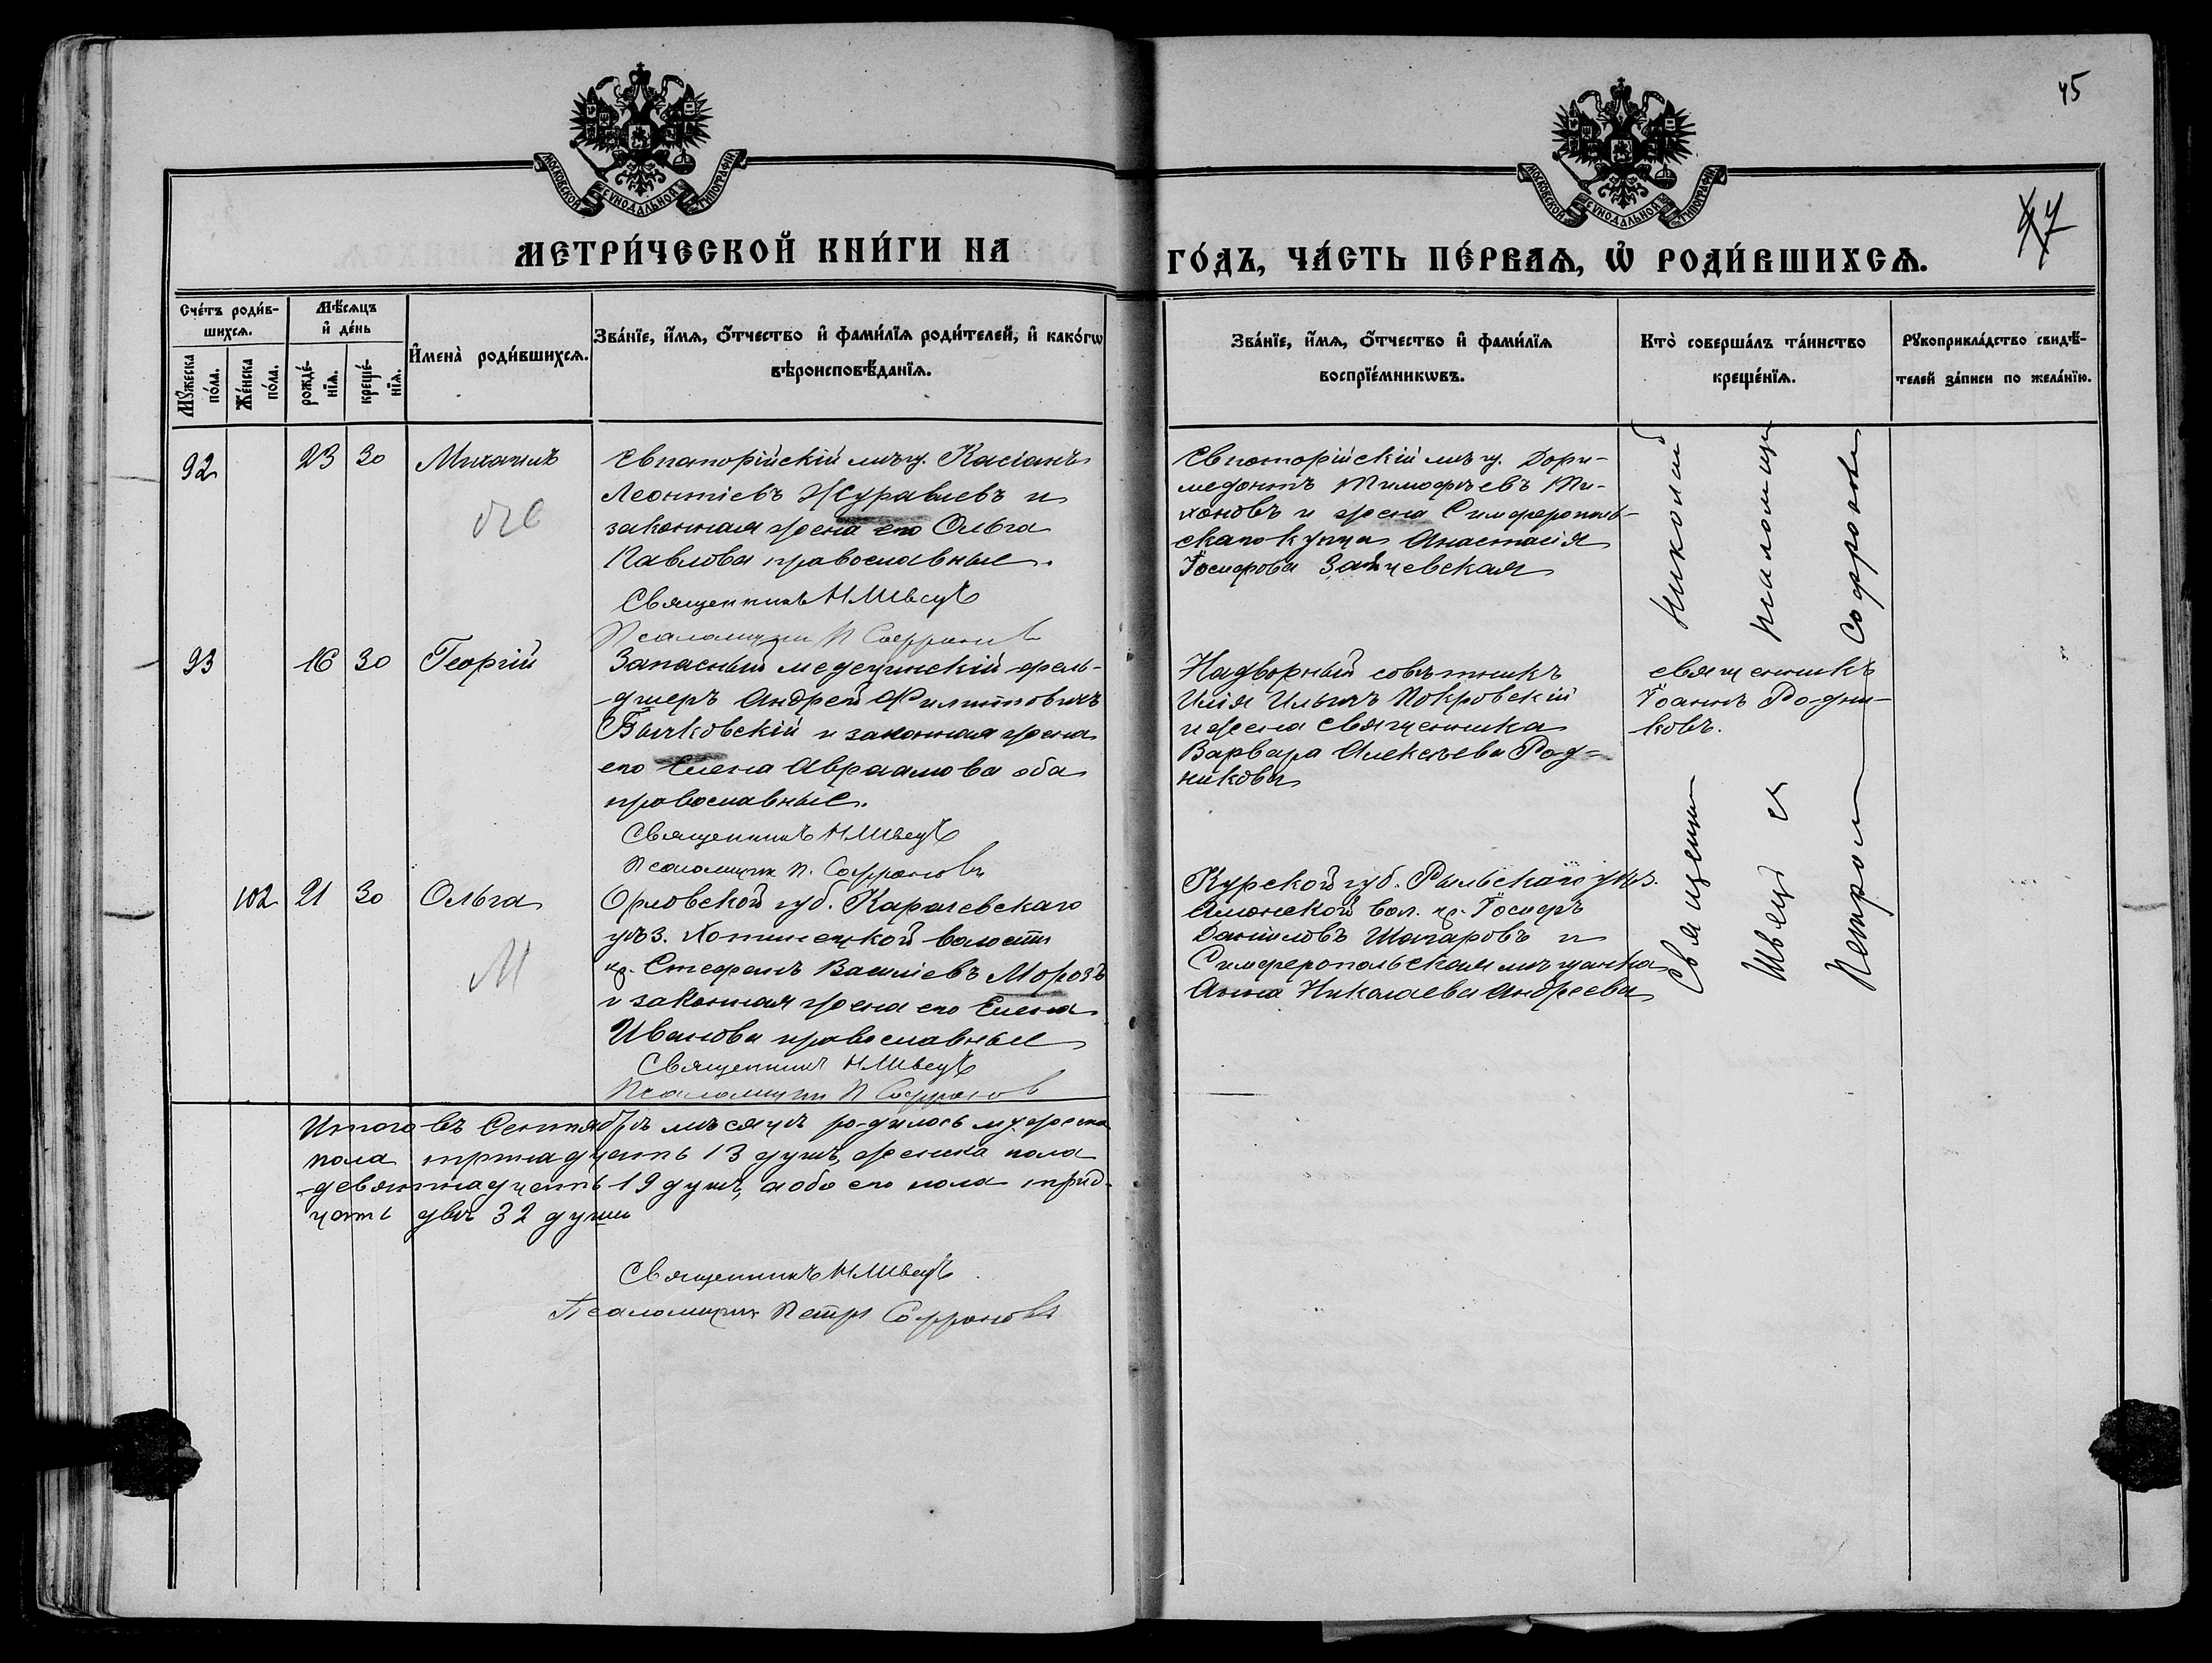 45
МОСКОВСКОЙ СѴНОДАЛЬНОЙ ТИПОГРАФІИ
МОСКОВСКОЙ СѴНОДАЛЬНОЙ ТИПОГРАФІИ
МЕТРИ́ЧЕСКОЙ КНИ́ГИ НА
ГО́ДЪ, ЧА́СТЬ ПЕ́РВАЯ, Ѡ РОДИ́ВШИХСЯ.
Сче́тъ роди́в-
шихся.
Мꙋ́жеска
по́ла.
Же́нска
по́ла.
Мѣ́сяцъ
и де́нь
рожде́-
нїя.
креще́-
нїя.
И҆мена̀ роди́вшихся.
Зва́нїе, и҆́мя, ѻ҆́тчество и҆ фами́лїя роди́телей, и҆ како́гѡ
вѣроисповѣ́данїя.
Зва́нїе, и҆́мя, ѻ҆́тчество и҆ фами́лїя
воспрїе́мникѡвъ.
Кто̀ соверша́лъ та́инство
креще́нїя.
Рꙋкоприкла́дство свидѣ́-
телей за́писи по жела́нїю.
92
23
30
Михаилъ
Евпаторійскій мѣщ. Касіанъ
Леонтіевъ Журавлевъ и
законная жена его Ольга
Павлова православные.
Священникъ Н Швецъ
Псаломщик П Софронов
Евпаторійскій мѣщ. Дори-
медонтъ Тимофѣевъ Ти-
хоновъ и жена Симферополь-
скаго купца Анастасія
Іосифова Зайчевская
93
16
30
Георгій
Запасный медецинскій фель-
дшеръ Андрей Филипповичъ
Бычковскій и законная жена
его Елена Авраамова оба
православные.
Священникъ Н Швецъ
Псаломщик П. Софроновъ
Надворный совѣтникъ
Илія Ильичъ Покровскій
и жена священника
Варвара Алексѣева Род-
никова
священникъ
Іоаннъ Родни-
ковъ.
102
21
30
Ольга
М
Орловской губ. Карачевскаго
уѣз. Хотинецкой волости
кр. Стефанъ Василіевъ Морозъ
и законная жена его Елена
Иванова православные
Священникъ Н Швецъ
Псаломщик П Софронов
Курской губ. Рыльскаго уѣз.
Амонской вол. кр. Іосифъ
Даниловъ Шачаровъ и
Симферопольская мѣщанка
Анна Николаева Андреева
Священник Николай
Швецъ и псаломщик
Петр Софронов
Итого въ Сентябрѣ мѣсяцѣ родилось мужеска
пола тринадцать 13 душъ, женска пола
девятнадцать 19 душъ, а обоего пола трид-
цать двѣ 32 души
Священникъ Н Швецъ
Псаломщик Петръ Софроновъ